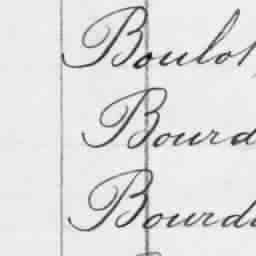 Boulot
Bourd
Bourd